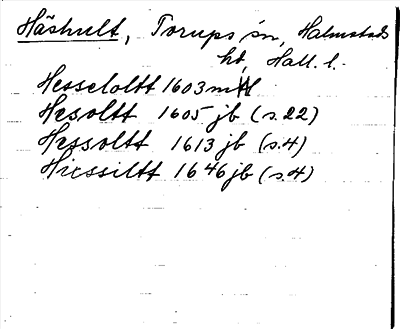 Häshult, Torups sn, Halmstads
hd, Hall. l.
Hesseloltt 1603 mtl
Hesoltt 1605 jb (s. 22)
Hessoltt 1613 jb (s. 4)
Hiessiltt 1646 jb (s. 4)